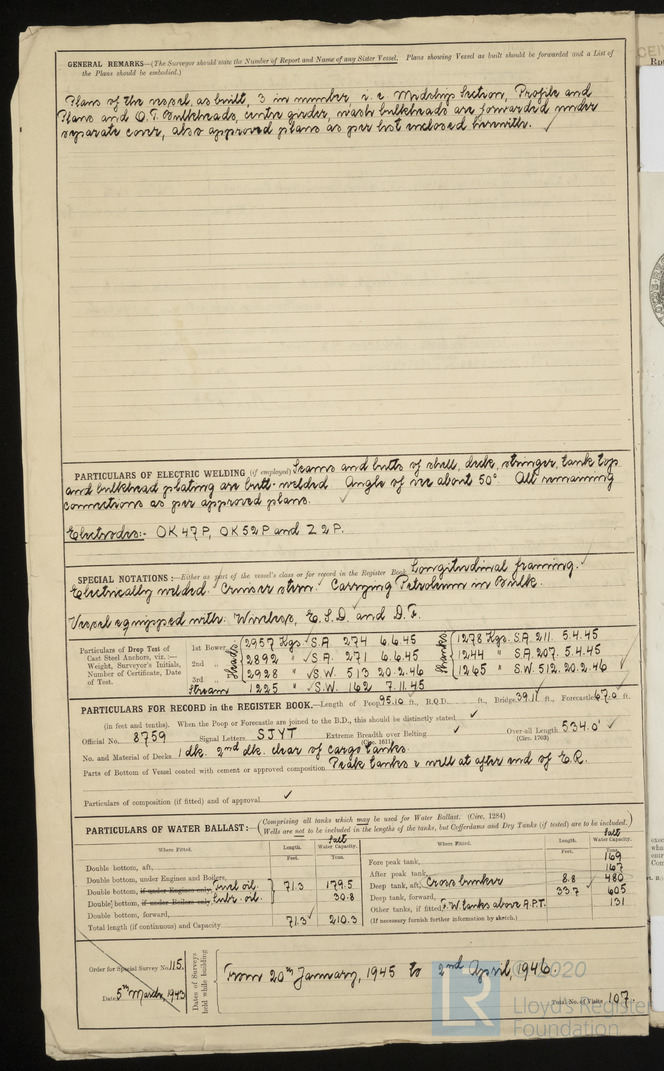 GENERAL REMARKS—(The Surveyor should state the Number of Report and Name of any Sister Vessel. Plans showing Vessel as built should be forwarded and a List of
the Plans should be embodied.)
Plans of the vessel as built, 3 in number i.e. Midship Section, Profile and
Plans and O.T. Bulkheads, centre girder, wash bulkheads are forwarded under
separate cover, also approved plans as per list enclosed herewith. ✓
PARTICULARS OF ELECTRIC WELDING (if employed) Seams and butts of shell, deck, stringer, tank top
and bulkhead plating are butt-welded Angle of vee about 50°. All remaining
connections as per approved plans.
Electrodes:- OK 47 P, OK 52 P and Z 2 P.
SPECIAL NOTATIONS:—Either as part of the vessel's class or for record in the Register Book Longitudinal framing. ✓
Electrically welded. Cruiser stern. Carrying Petroleum in Bulk.
Vessel equipped with: Wireless, E.S.D. and D.F.
Particulars of Drop Test of Cast Steel Anchors, viz.:— Weight, Surveyor's Initials, Number of Certificate, Date of Test.
Heads Shanks
1st Bower 2957 Kgs ✓ S.A 274 6.6.45 1278 Kgs. S.A. 211. 5.4.45
2nd „ 2892 " ✓ S.A. 271 6.6.45 1244 " S.A. 207. 5.4.45
3rd „ 2928 " ✓ S.W. 513 20.2.46 1265 " S.W. 512. 20.2.46 ✓
Stream 1225 " ✓ S.W. 162 7.11.45
PARTICULARS FOR RECORD in the REGISTER BOOK.—Length of Poop 95.10 ft., R.Q.D. ft., Bridge 39.11 ft., Forecastle 67.0 ft.
(in feet and tenths). When the Poop or Forecastle are joined to the B.D., this should be distinctly stated ✓
Official No. 8759 Signal Letters SJYT Extreme Breadth over Belting ✓ Over-all Length 534.0' ✓
(Circ. 1611) (Circ. 1703)
No. and Material of Decks 1 dk. 2nd dk. clear of cargo tanks.
Parts of Bottom of Vessel coated with cement or approved composition Peak tanks & well at after end of E.R.
Particulars of composition (if fitted) and of approval ✓
PARTICULARS OF WATER BALLAST:— (Comprising all tanks which may be used for Water Ballast. (Circ. 1284)
Wells are not to be included in the lengths of the tanks, but Cofferdams and Dry Tanks (if tested) are to be included.)
Where Fitted. Length. Salt Water Capacity. Where Fitted. Length. Salt Water Capacity.
Feet. Tons. Feet. Tons.
Double bottom, aft, Fore peak tank, 169
Double bottom, under Engines and Boilers, After peak tank, 167
Double bottom, if under Engines only, Fuel oil. 71.3 179.5 Deep tank, aft, Cross bunker 8.8 480
Double bottom, if under Boilers only, Lubr. oil. 30.8 Deep tank, forward, 33.7 605
Double bottom, forward, Other tanks, if fitted, F.W. tanks above A.P.T. 131
Total length (if continuous) and Capacity 71.3 ✓ 210.3 (If necessary furnish further information by sketch.)
Order for Special Survey No. 115.
Date 5th March, 1943
Dates of Surveys held while building
From 20th January, 1945 to 2nd April, 1946.
Total No. of Visits 107.
© 2020
LR
Lloyd's Register
Foundation